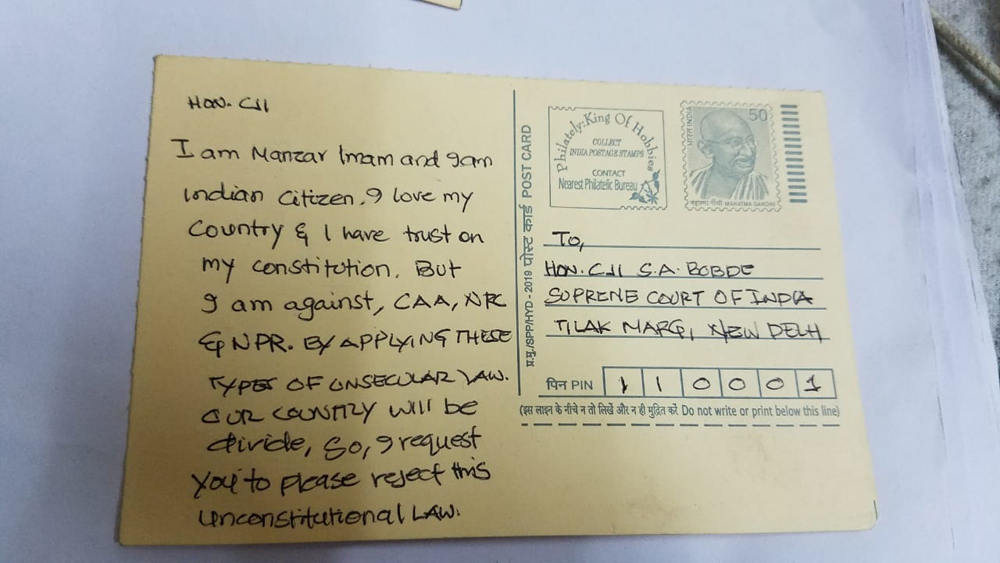 HON. CJI
I am Manzar Imam and I am
indian Citizen. I love my
Country & I have trust on
my constitution. But
I am against, CAA, NRC
& NPR. BY APPLYING THESE
TYPES OF UNSECULAR LAW.
OUR COUNTRY WILL be
divide, So, I request
you to please reject this
unconstitutional LAW.
प्र.मु./SPP/HYD - 2019 पोस्ट कार्ड POST CARD
Philately: King Of Hobbies
COLLECT
INDIA POSTAGE STAMPS
CONTACT
Nearest Philatelic Bureau
भारत INDIA
50
महात्मा गाँधी MAHATMA GANDHI
To,
HON. CJI S.A. BOBDE
SUPREME COURT OF INDIA
TILAK MARG, NEW DELH
पिन PIN 1 1 0 0 0 1
(इस लाइन के नीचे न तो लिखें और न ही मुद्रित करें Do not write or print below this line)